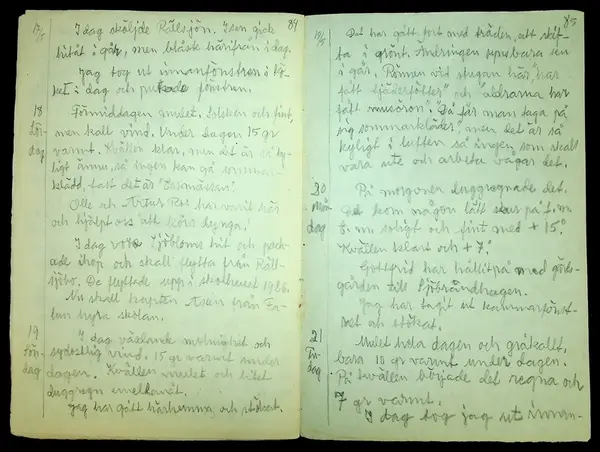 84
17/5
I dag sköljde Rällsjön. Isen gick
hitåt i går, men blåste härifrån i dag.
Jag tog ut innanfönstren i kö-
ket i dag och putsade fönstren.
18
Lör-
dag
Förmiddagen mulet. Solsken och fint,
men kall vind. Under dagen 15 gr
varmt. Kvällen klar, men det är så ky-
ligt ännu, så ingen kan gå sommar-
klädd, fast det är
Olle och Artur Ros har varit här
och hjälpt oss att köra dynga.
I dag voro Sjöbloms hit och pack-
ade ihop och skall flytta från Räll-
sjöbo. De flyttade upp i skolhuset 1926.
Nu skall kapten från Fa-
lun hyra skolan.
19
Sön-
dag
I dag växlande molnighet och
sydostlig vind. 15 gr varmt under
dagen. Kvällen mulet och litet
duggregn emellanåt.
Jag har gått här hemma och stökat.
85
19/5
Det har gått fort med träden, att skif-
ta i grönt. Ändringen synsbara sen
i går. Rönnen vid stugan här "har
fått fjäderfötter" och "aldrarna har
fått musöron". "Då får man taga på
sig sommarkläder" men det är så
kyligt i luften så ingen som skall
vara ute och arbeta vågar det.
20
Mån
dag
På morgonen duggregnade det.
Det kom någon lätt skur på f.m.
E.m. soligt och fint med + 15.
Kvällen klart och + 7°.
Gottfrid har hållit på med gärds-
gården till Sjöråndhagen.
Jag har tagit ut kammarfönst-
ret och stökat.
21
Tis-
dag
Mulet hela dagen och gråkallt,
bara 10 gr varmt under dagen.
På kvällen började det regna och
7 gr varmt.
I dag tog jag ut innan-